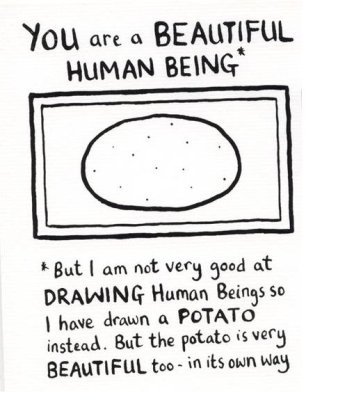 YOU are a BEAUTIFUL
HUMAN BEING*
* But I am not very good at
DRAWING Human Beings so
I have drawn a POTATO
instead. But the potato is very
BEAUTIFUL too - in its own way